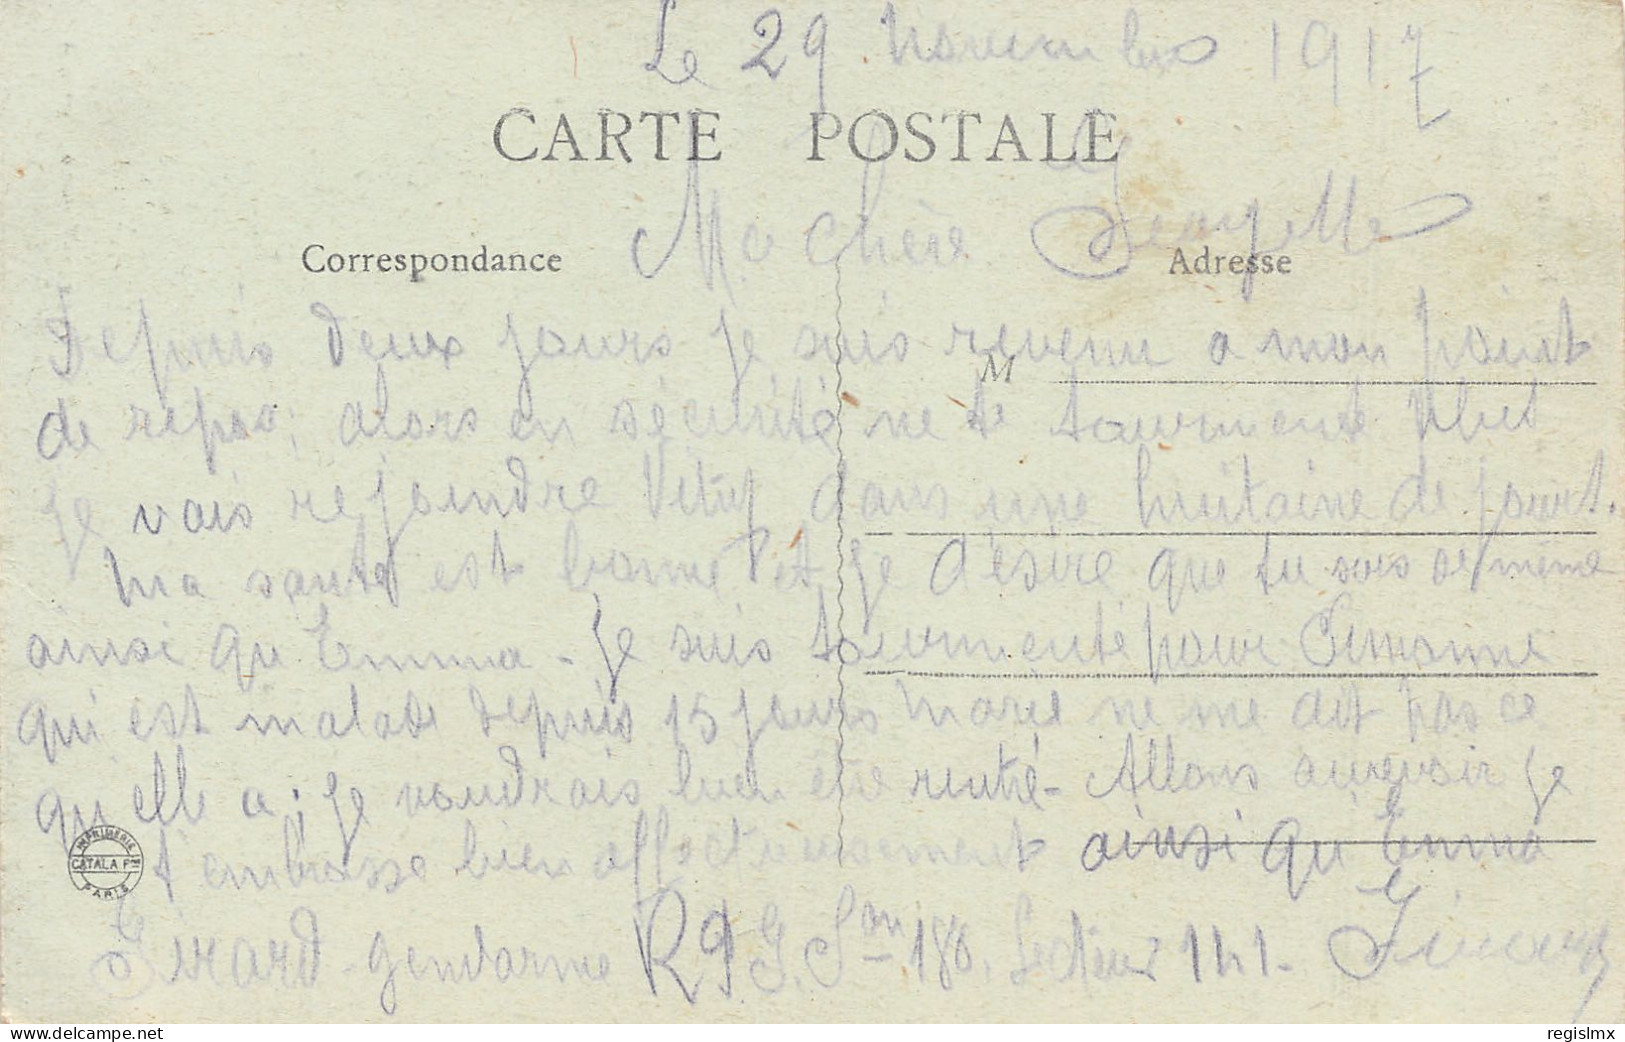 Le 29 novembre 1917
CARTE POSTALE
Ma chère
Correspondance
Adresse
Depuis deux jours je suis revenu a mon point
M
de repos; alors en sécurité ne te tourmente plus
Je vais rejoindre Vitry dans une huitaine de jours.
Ma santé est bonne et je désire que tu sois de même
ainsi qu'Emma - Je suis tourmenté pour
qui est malade depuis 15 jours Marie ne me dit pas ce
qu'elle a; je voudrais bien être rentré - Allons aurevoir je
t'embrasse bien affectueusement ainsi qu'Emma
IMPRIMERIE CATALA F RES PARIS
Girard gendarme R9 G. S on 180. Secteur 141 -
regislmx